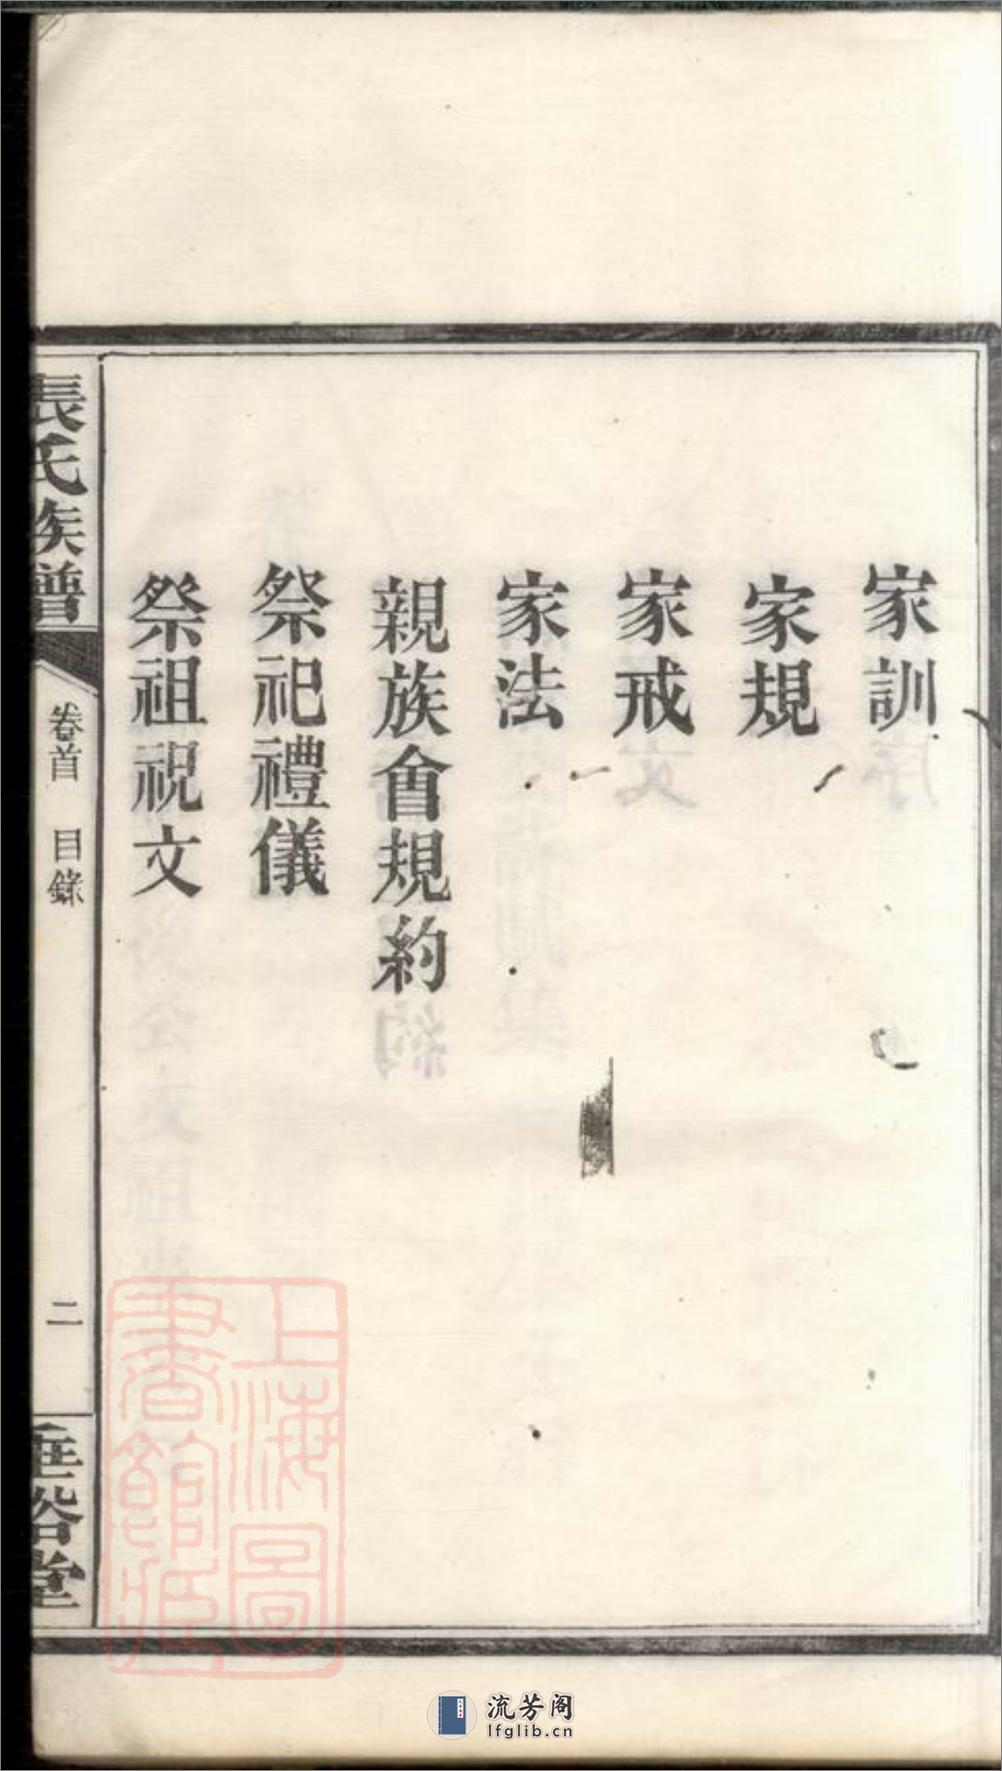 家訓
家規
家戒
家法
親族會規約
祭祀禮儀
祭祖祝文
張氏族譜
卷首 目錄
二
垂裕堂
上海圖書館藏
流芳阁
lfglib.cn